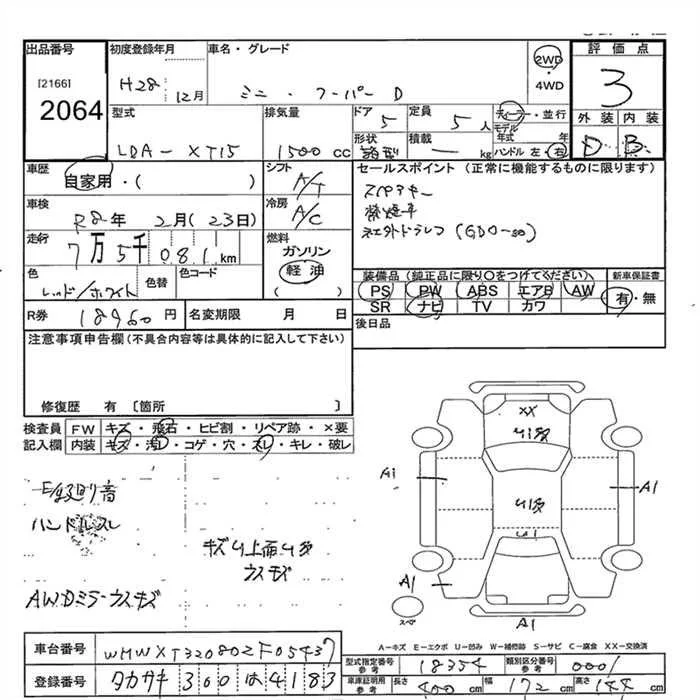 出品番号 初度登録年月 車名・グレード 2WD 評価点
[2166] H28 12月 ミニ・クーパーD ・4WD 3
2064 型式 排気量 ドア 5 定員 5人 ディーラー・並行 外装 内装
モデル年式 年
LDA-XT15 1500cc 形状 積載 — kg ハンドル 左・右 D B
車歴 シフト セールスポイント(正常に機能するものに限ります)
自家用・( ) A/T スペアキー
車検 冷房 禁煙車
R8年 2月(23日) A/C 社外ドラレコ(GDO-
走行 燃料
7万5千081km ガソリン
色 色替 色コード 軽油 装備品(純正品に限り○をつけてください) 新車保証書
レッド/ホワイト ( ) PS PW ABS エアB AW 有・無
R券 18960円 名変期限 月 日 SR ナビ TV カワ
注意事項申告欄(不具合内容等は具体的に記入して下さい) 後日品
修復歴 有 〔箇所 〕
検査員 FW キズ・飛石・ヒビ割・リペア跡・×要
記入欄 内装 キズ・汚れ・コゲ・穴・スレ・キレ・破レ
XX
A1
A1
ハンドルスレ
ウスキズ
AWDミラーウスキズ
A1
スペア
A1
A-キズ E-エクボ U-凹み W-補修跡 S-サビ C-腐食 XX-交換済
車台番号 WMWXT320802F05437
型式指定番号 参考 18354 類別区分番号 参考 0001
登録番号 タカサキ 300 は 4183
車庫証明用 参考 長さ 400cm 幅 172cm 高さ 144cm